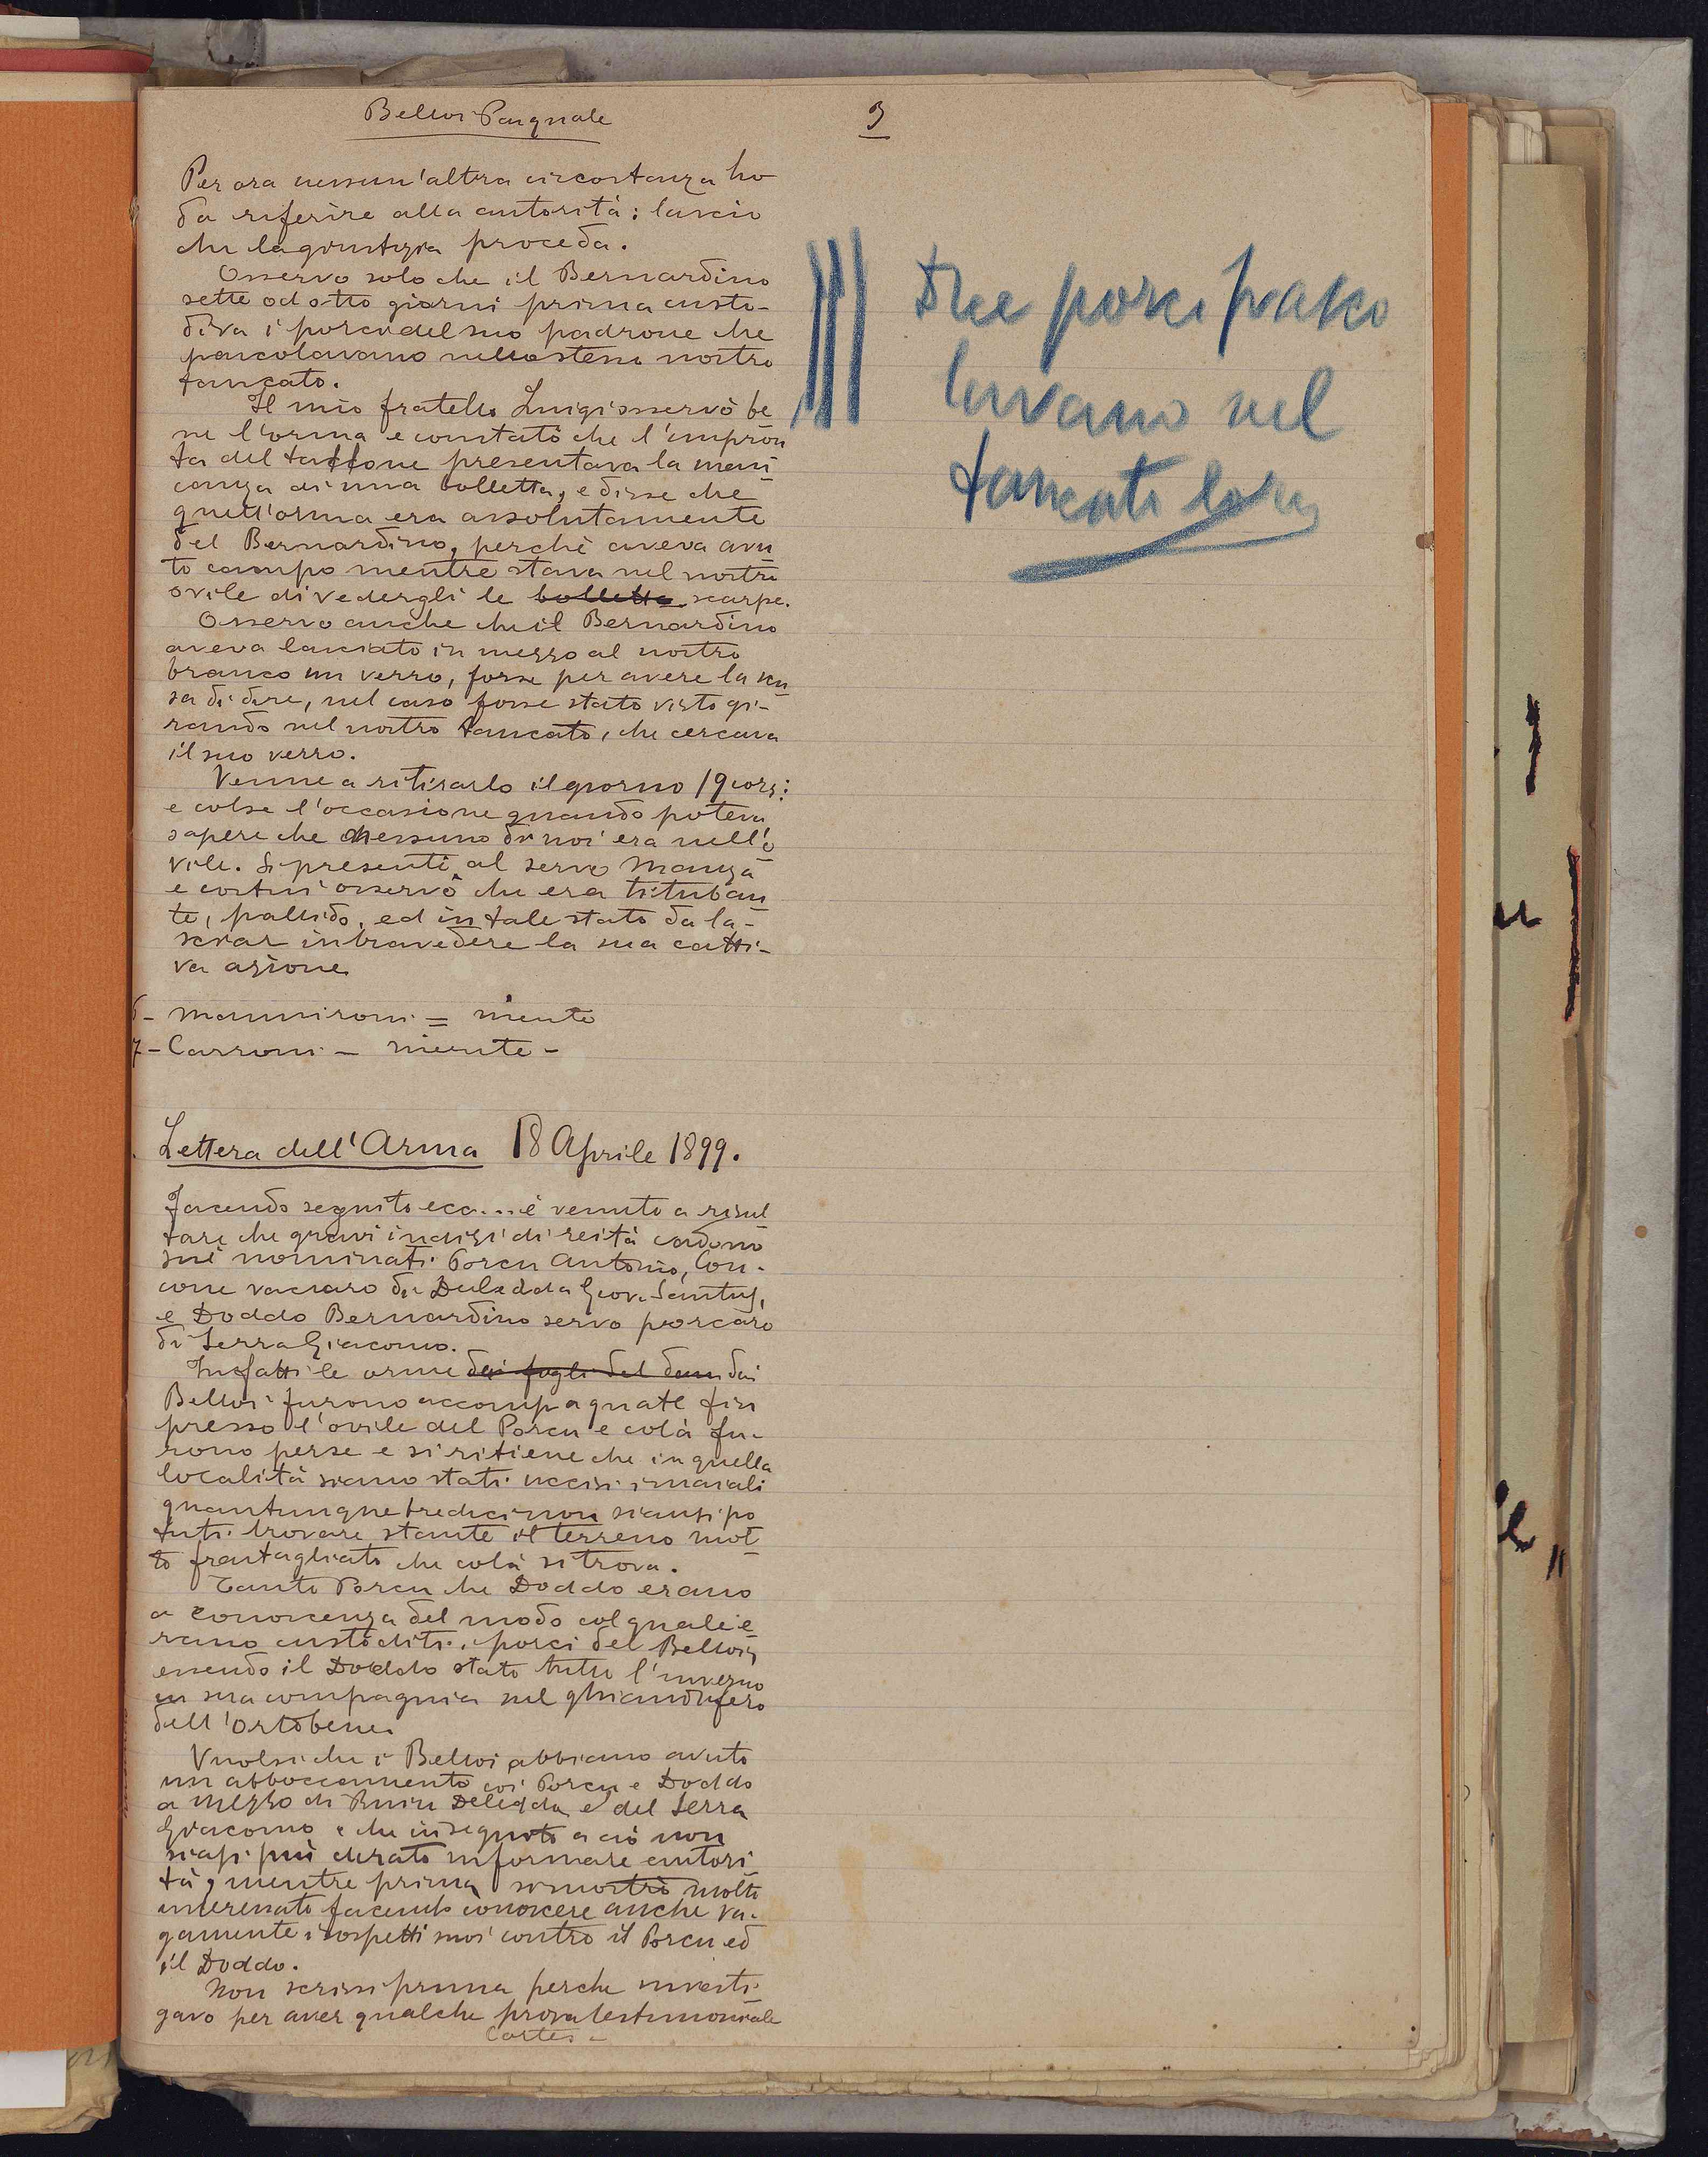 Belloi Pasquale
3
Per ora nessun'altra circostanza ho
da riferire alla autorità: lascio
che la giustizia proceda.
Osservo solo che il Bernardino
sette od otto giorni prima custo-
diva i porci del suo padrone che
pascolavano nello stesso nostro
tancato.
Il mio fratello Luigi osservò be
ne l'orma e constatò che l'impron
ta del tallone presentava la man
canza di una bolletta, e disse che
quell'orma era assolutamente
del Bernardino, perchè aveva avu
to campo mentre stava nel nostro
ovile di vedergli le bollette scarpe.
Osservo anche che il Bernardino
aveva lasciato in mezzo al nostro
branco un verro, forse per avere la scu
sa di dire, nel caso fosse stato visto gi-
rando nel nostro tancato, che cercava
il suo verro.
Venne a ritirarlo il giorno 19 cors:
e colse l'occasione quando poteva
sapere che nessuno di noi era nell'o
vile. Si presentò al servo Manza
e costui osservò che era tituban
te, pallido, ed in tale stato da la-
sciar intravedere la sua catti-
va azione
6- Mannironi = niente
7- Carroni - niente -
Lettera dell'Arma 18 Aprile 1899.
Facendo seguito ecc... è venuto a risul
tare che gravi indizi di reità cadono
sui nominati Porcu Antonio, Con-
cone vaccaro di Deledda Giov. Santus,
e Doddo Bernardino servo porcaro
di Serra Giacomo.
Infatti le orme dai fogli del dan dai
Belloi furono accompagnate fin
presso l'ovile del Porcu e colà fu-
rono perse e si ritiene che in quella
località siano stati uccisi i maiali
quantunque tredici non siansi po
tuti trovare stante il terreno mol
to frastagliato che colà si trova.
Tanto Porcu che Doddo erano
a conoscenza del modo col quale e
rano custoditi i porci del Belloi,
essendo il Doddo stato tutto l'inverno
in sua compagnia nel ghiandifero
dell'Ortobene.
Vuolsi che i Belloi abbiano avuto
un abboccamento coi Porcu e Doddo
a mezzo di Ruiu Deledda e del Serra
Giacomo e che in seguito a ciò non
siasi più curato informare autori
tà, mentre prima si mostrò molto
interessato facendo conoscere anche va-
gamente i sospetti suoi contro il Porcu ed
il Doddo.
Non scrissi prima perche investi
gavo per aver qualche prova testimoniale
Cortesi -
Due porci pasco
lavano nel
tancato loro